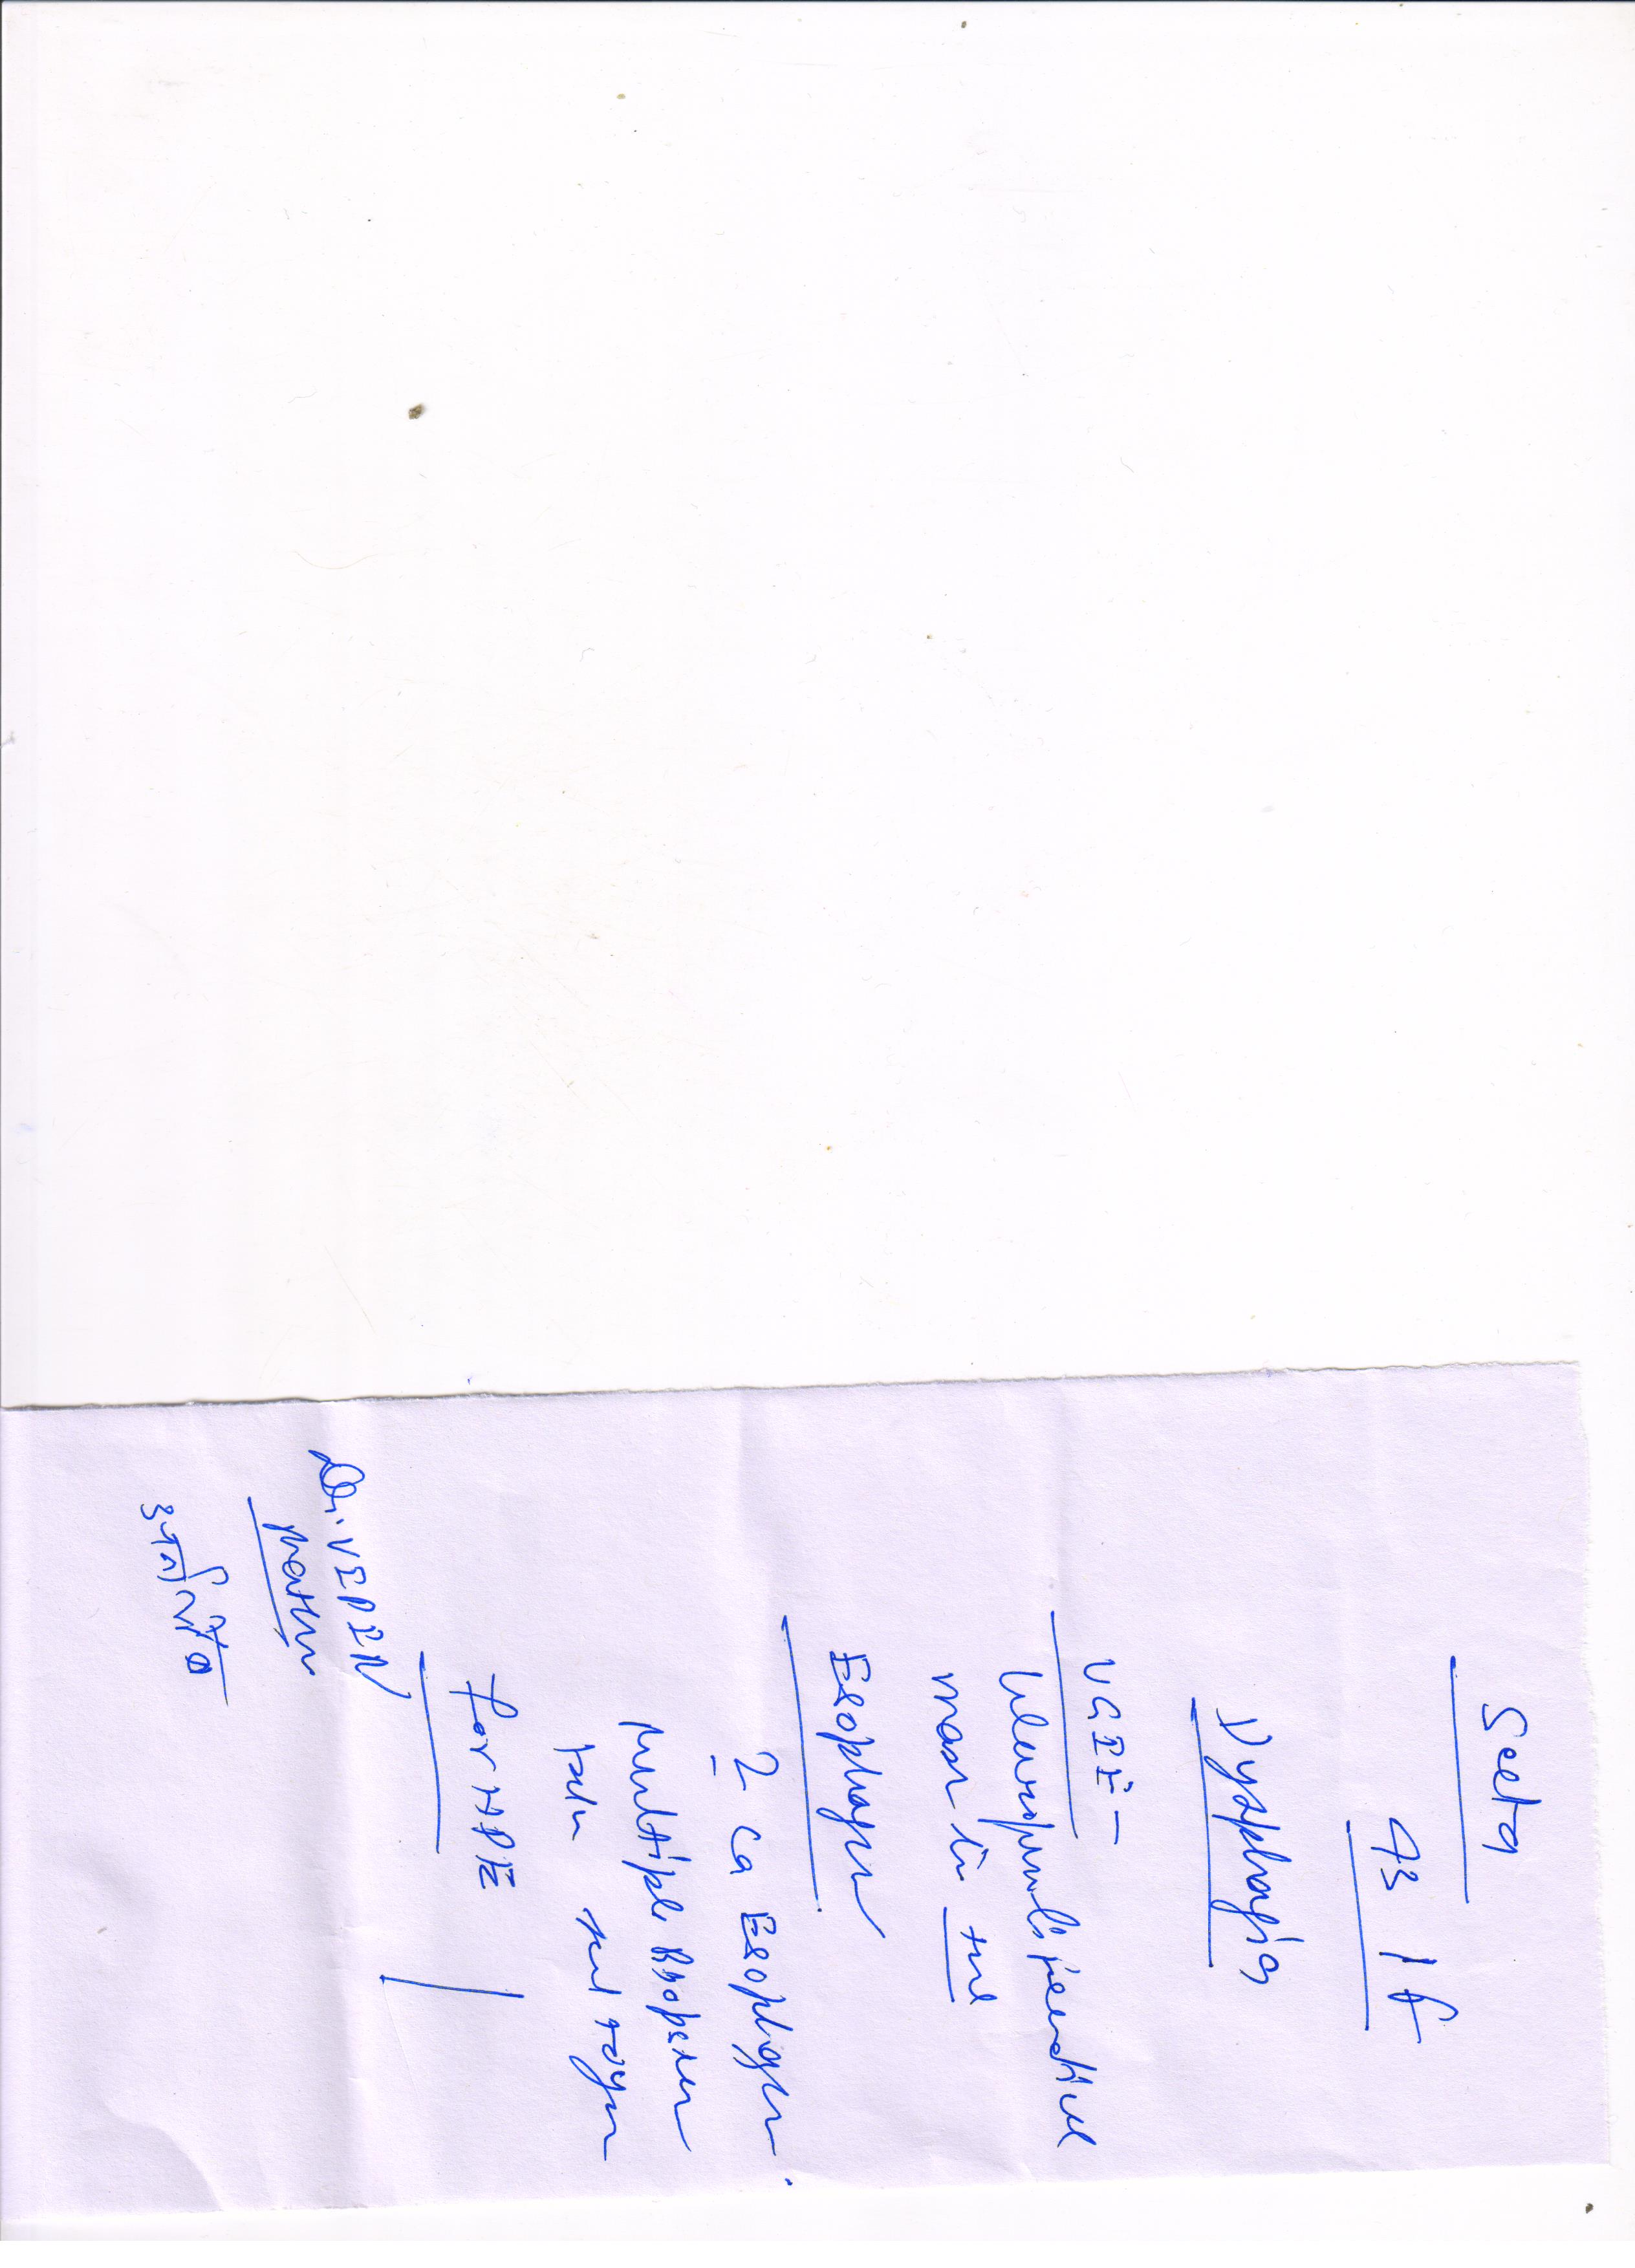 Seeta
43 / F
Dysphagia
UGIE -
Ulceroproliferative
mass in the
Esophagus
? Ca Esophagus.
Multiple Biopsies
taken sent
for HPE
Dr. VIPIN